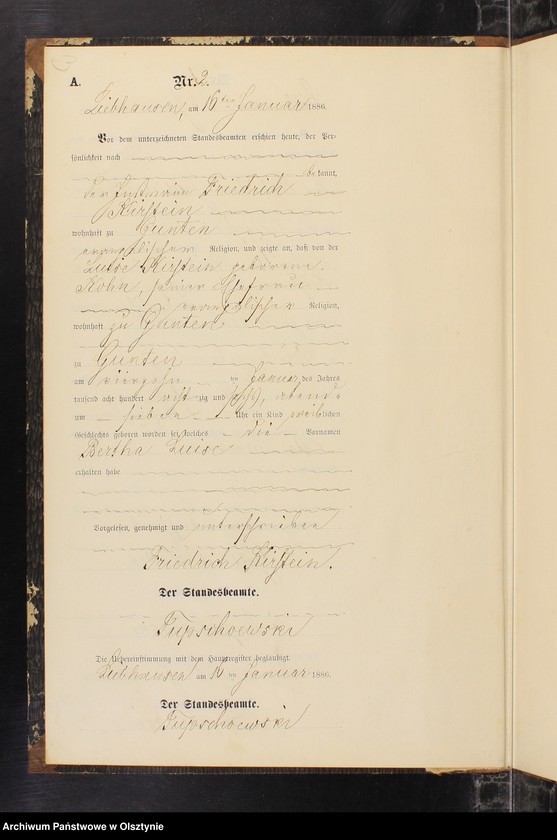 A. Nr. 2.
Liebhausen, am 16ten Januar 1886.
Vor dem unterzeichneten Standesbeamten erschien heute, der Per-
sönlichkeit nach
be kannt,
der Friedrich
Kirstein
wohnhaft zu Gunten
evangelischer Religion, und zeigte an, daß von der
Luise Kirstein geborene
seiner Ehefrau
evangelischer Religion,
wohnhaft zu Gunten
zu Gunten
am vierzehn ten Januar des Jahres
tausend acht hundert acht zig und sechs, abends
um sieben Uhr ein Kind weiblichen
Geschlechts geboren worden sei, welches die Vornamen
Bertha Luise
erhalten habe
Vorgelesen, genehmigt und unterschrieben
Friedrich Kirstein.
Der Standesbeamte.
Die Uebereinstimmung mit dem Hauptregister beglaubigt.
Liebhausen am 16 ten Januar 1886.
Der Standesbeamte.
Archiwum Państwowe w Olsztynie